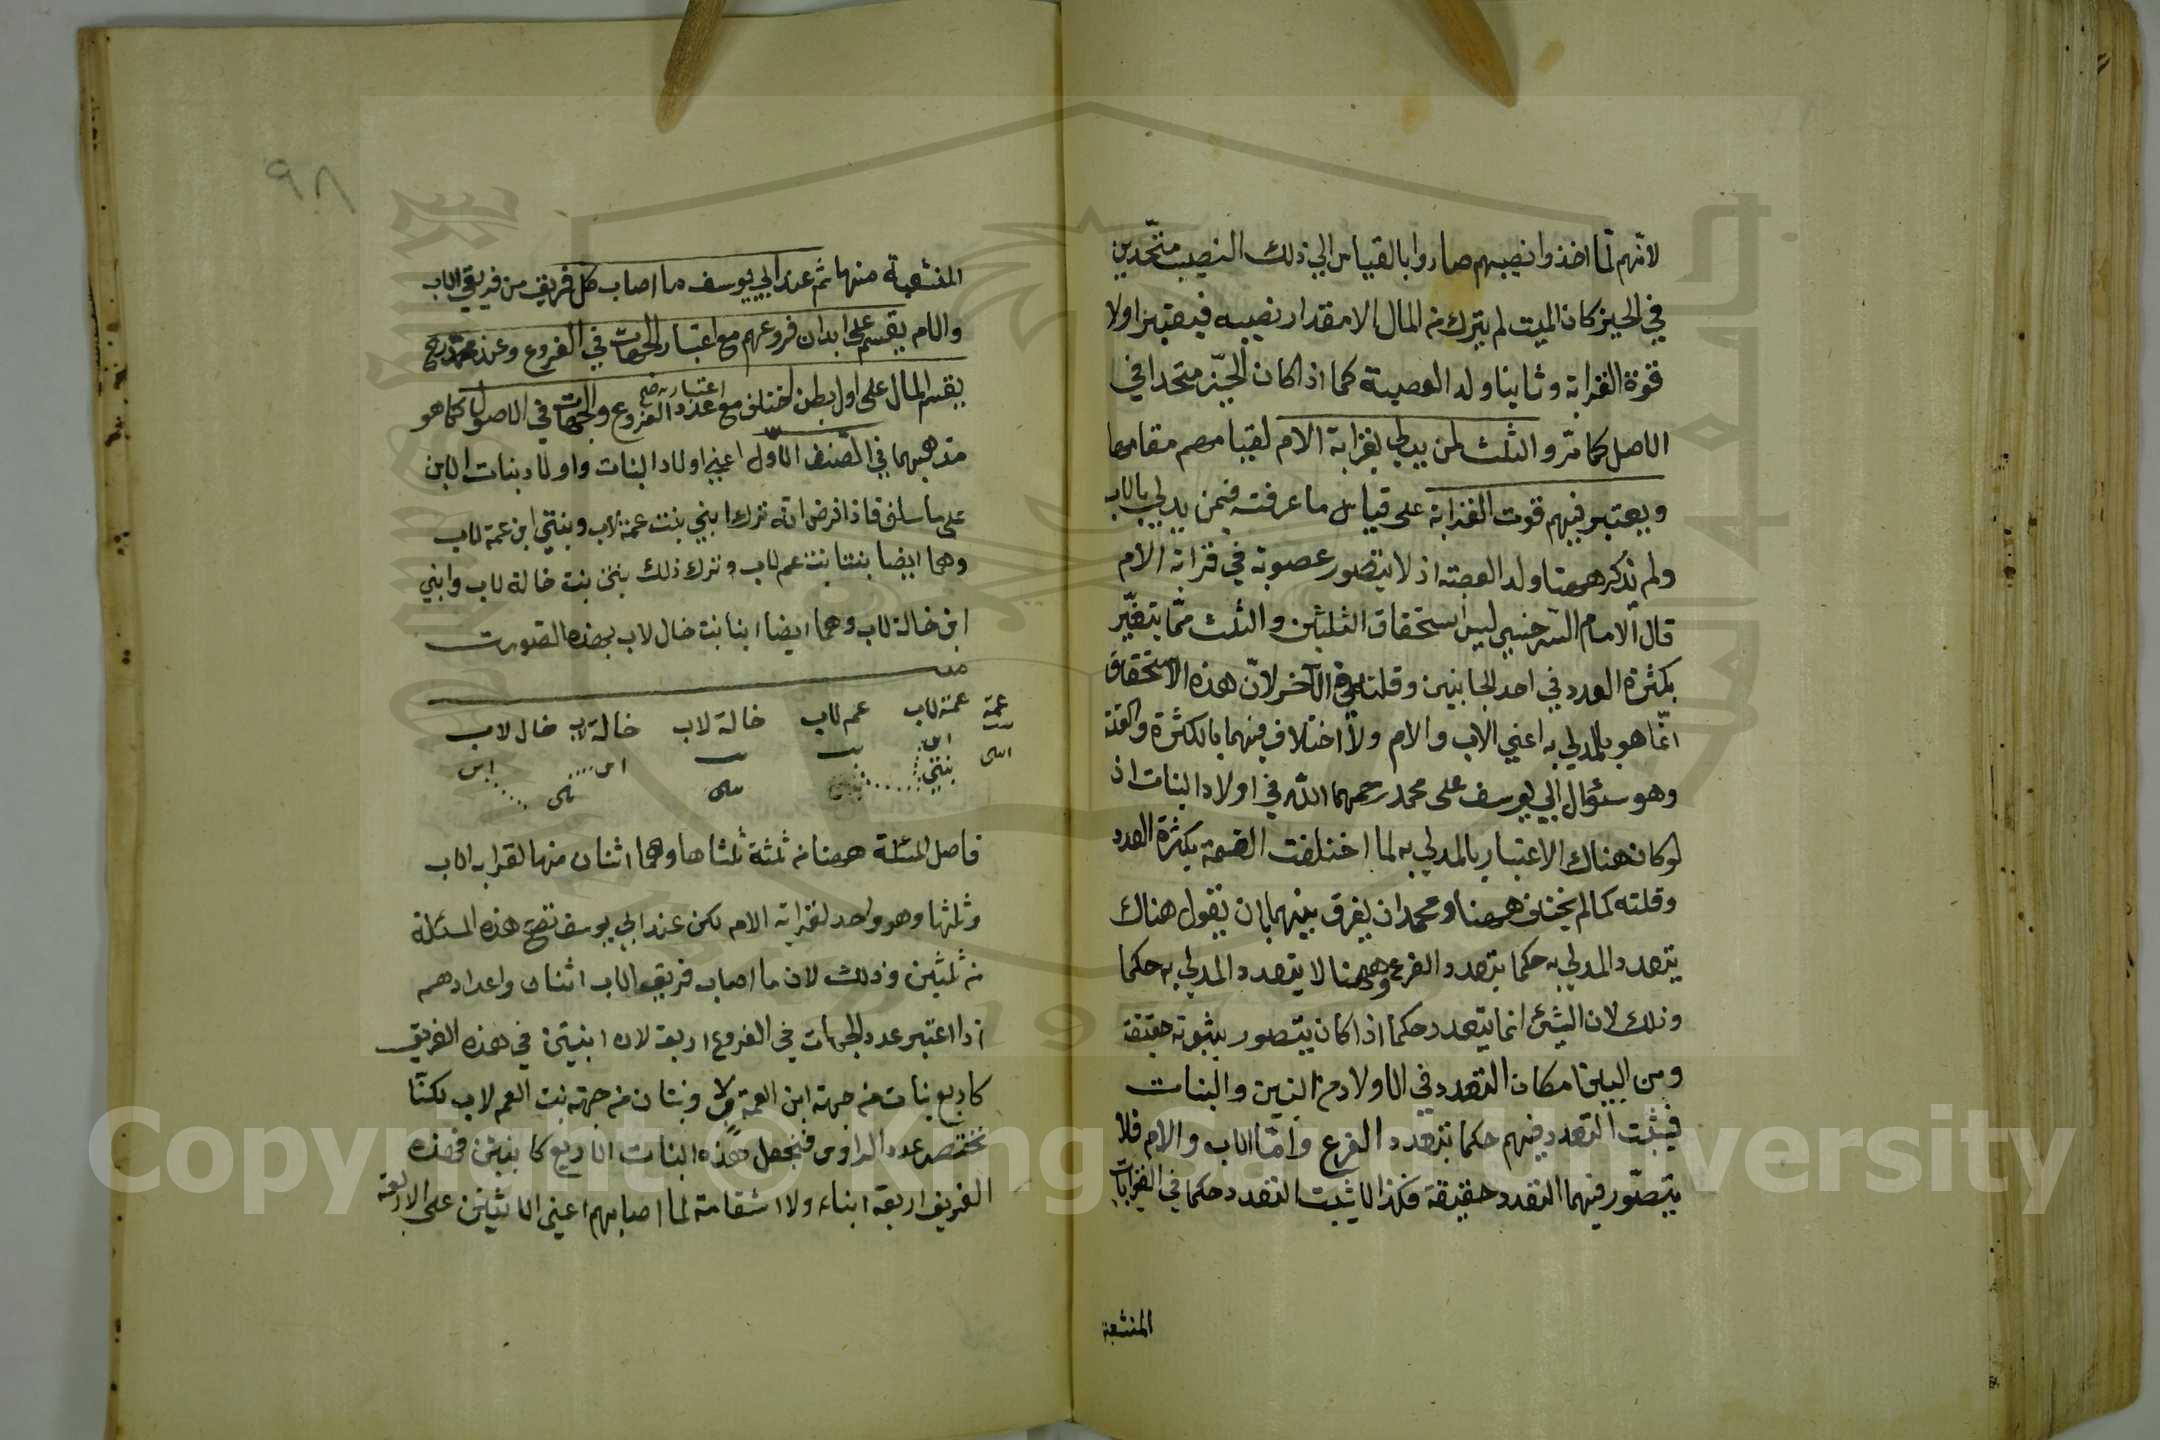 لانهم لما اخذوا نصيبهم صاروا بالقياس الي ذلك النصيب متحدين
في الحيز كان الميت لم يترك من المال الا مقدار نصيبه فيعتبر اولا
قوة القرابة وثانيا ولد العصبة كما اذا كان الحيز متحدا في
الاصل كما مر والثلث لمن يدلي بقرابة الام لقيامهم مقامها
ويعتبر فيهم قوت القرابة على قياس ما عرفته فيمن يدلي بالاب
ولم يذكر ههنا ولد العصبة اذ لا يتصور عصوبة في قرابة الام
قال الامام السرخسي ليس استحقاق الثلثين والثلث مما يتغير
بكثرة العدد في احد الجانبين وقلته في الآخر لان هذه الاستحقاق
انما هو بالمدلي به اعني الاب والام ولا اختلاف فيهما بالكثرة والقلة
وهو سئوال ابي يوسف على محمد رحمهما الله في اولاد البنات اذ
لو كان هناك الاعتبار بالمدلي به لما اختلفت القسمة بكثرة العدد
وقلته كما لم يختلف ههنا ولمحمد ان يفرق بينهما بان يقول هناك
يتعدد المدلي به حكما بتعدد الفرع وههنا لا يتعدد المدلي به حكما
وذلك لان الشئ انما يتعدد حكما اذا كان يتصور بثبوته حقيقة
ومن البين امكان التعدد في الاولاد من البنين والبنات
فيثبت التعدد فيهم حكما بتعدد الفرع واما الاب والام فلا
يتصور فيهما التعدد حقيقة فكذا لا يثبت التعدد حكما في القرابات
المنشعبة
٩٨
المنشعبة منها ثم عند ابي يوسف ما اصاب كل فريق من فريقي الاب
والام يقسم على ابدان فروعهم مع اعتبار الجهات في الفروع وعند محمد رح
يقسم المال على اول بطن اختلف مع اعتبار عدد الفروع والجهات في الاصول كما هو
مذهبهما في الصنف الاول اعني اولاد البنات واولاد بنات الابن
على ما سلف فاذا فرض انه ترك ابني بنت عمة لاب وبنتي ابن عمة لاب
وهما ايضا بنتا بنت عم لاب وترك ذلك بنتي بنت خالة لاب وابني
ابن خالة لاب وهما ايضا ابنا بنت خال لاب بهذه الصورت
عمة عمة لاب عم لاب خالة لاب خالة لاب خال لاب
بنت ابن بنت بنت ابن
بنتي
فاصل المسئلة ههنا من ثلثة ثلثاها وهما اثنان منها لقرابة الاب
وثلثها وهو واحد لقرابة الام لكن عند ابي يوسف تصح هذه المسئلة
من ثلثين وذلك لان ما اصاب فريق الاب اثنان واعدادهم
اذا اعتبر عدد الجهات في الفروع اربعة لان ابنتين في هذه الفريق
كاربع بنات من جهة ابن العمة وبنتان من جهة بنت العم لاب لكنا
نختصر عدد الرؤس فنجعل هذه البنات الاربع كابنين ففي هذه
الفريق اربعة ابناء ولا استقامة لما اصابهم اعني الاثنين على الاربعة
Copyright © King Saud University
1957